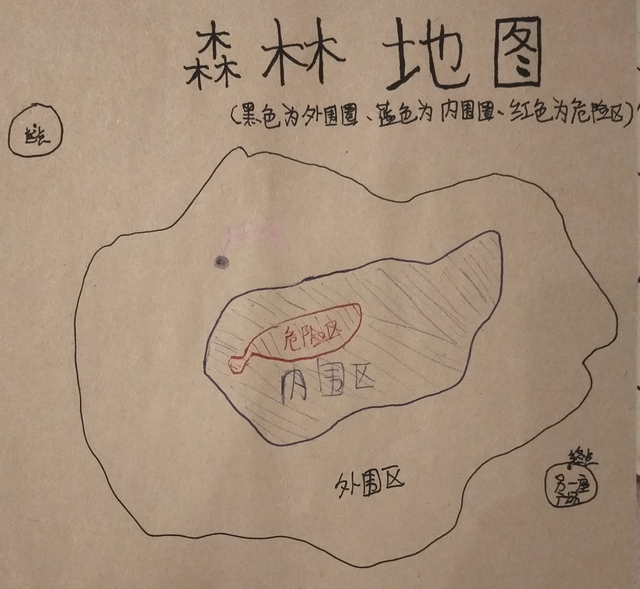 森林地图
(黑色为外围圈、蓝色为内围圈、红色为危险区)
危险区
内围区
外围区
终点
另一座